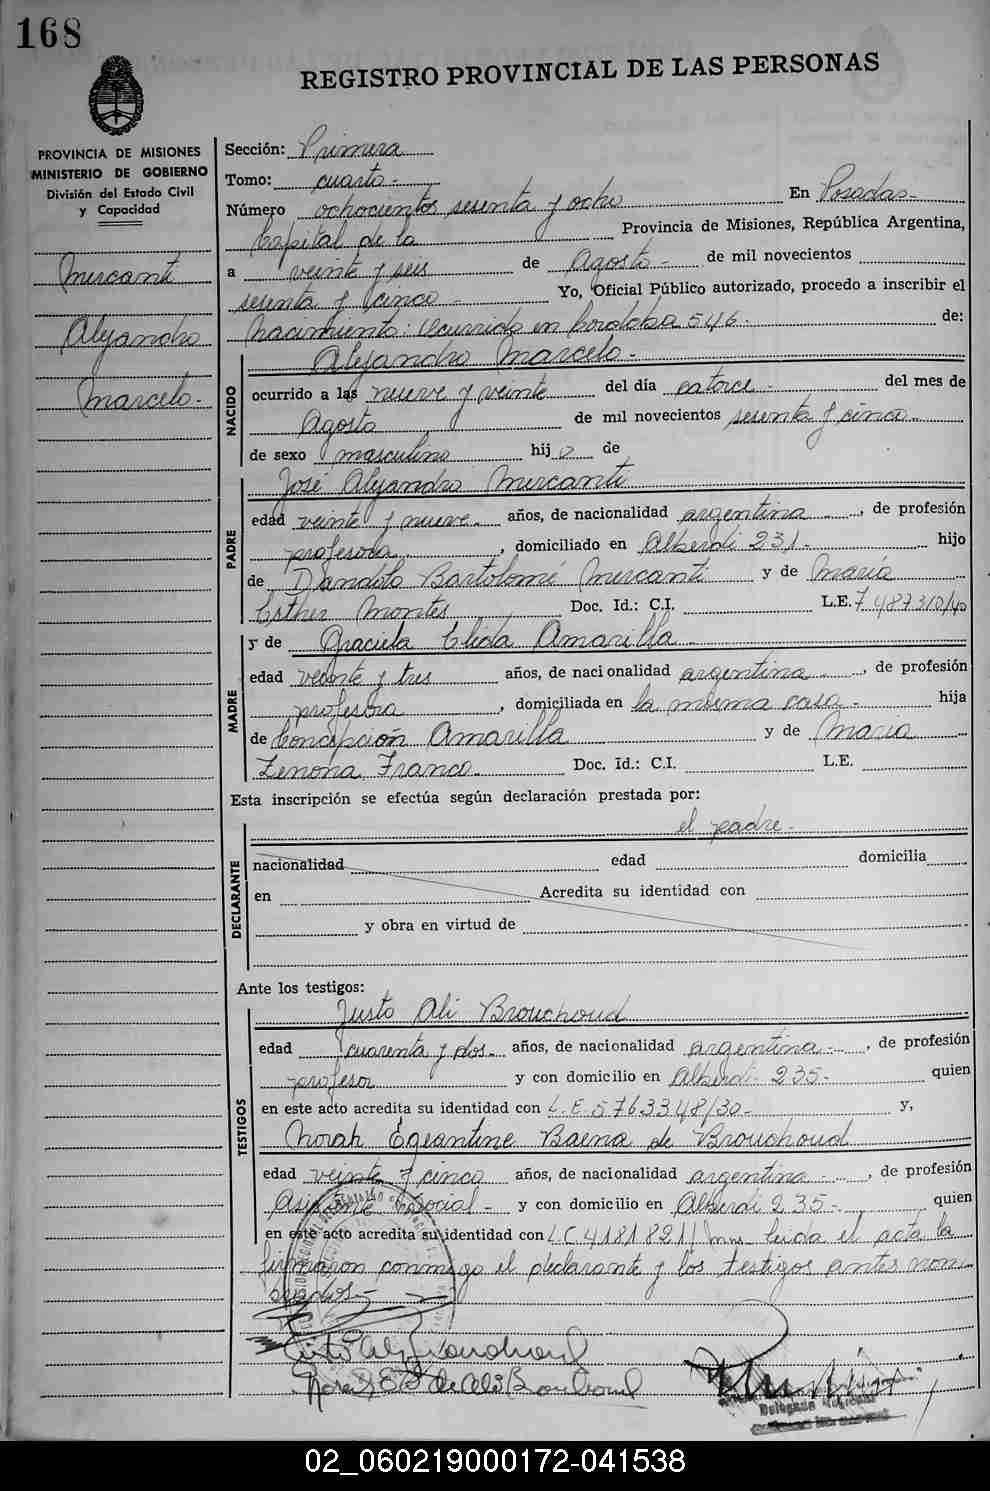 168
REGISTRO PROVINCIAL DE LAS PERSONAS
PROVINCIA DE MISIONES
MINISTERIO DE GOBIERNO
División del Estado Civil
y Capacidad
Mercanti
Alejandro
Marcelo.-
Sección: Primera
Tomo: cuarto.-
Número ochocientos sesenta y ocho En Posadas-
Capital de la Provincia de Misiones, República Argentina,
a veinte y seis de Agosto.- de mil novecientos
sesenta y cinco.- Yo, Oficial Público autorizado, procedo a inscribir el
nacimiento: Ocurrido en Cordoba 546.- de:
Alejandro Marcelo.-
NACIDO
ocurrido a las nueve y veinte del día catorce.- del mes de
Agosto de mil novecientos sesenta y cinco.-
de sexo masculino hijo de
PADRE
José Alejandro Mercanti
edad veinte y nueve.- años, de nacionalidad argentina.-, de profesión
profesora, domiciliado en Alberdi 231.- hijo
de Dandolo Bartolomé Mercanti y de María
Esther Montes Doc. Id.: C.I. L.E. 7.487.310/40
MADRE
y de Graciela Elida Amarilla.-
edad veinte y tres años, de nacionalidad argentina.-, de profesión
profesora, domiciliada en la misma casa.- hija
de Concepción Amarilla y de María
Zenona Franco.- Doc. Id.: C.I. L.E.
Esta inscripción se efectúa según declaración prestada por:
el padre.-
DECLARANTE
nacionalidad edad domicilia
en Acredita su identidad con
y obra en virtud de
Ante los testigos:
TESTIGOS
Justo Ali Brouchoud
edad cuarenta y dos.- años, de nacionalidad argentina.-, de profesión
profesor y con domicilio en Alberdi- 235.- quien
en este acto acredita su identidad con L.E. 5763348/30.- y,
Norah Egeantine Baena de Brouchoud
edad veinte y cinco años, de nacionalidad argentina.-, de profesión
Asistente Social.- y con domicilio en Alberdi 235.- quien
en este acto acredita su identidad con L.C. 4181821 leida el acta la
firmaron conmigo el declarante y los testigos antes nom
brados.-
Delegado
02_060219000172-041538